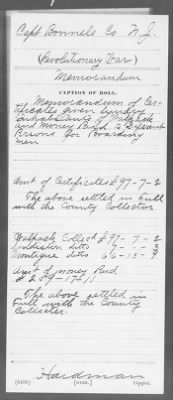 Capt Bonnels Co. N.J.
(Revolutionary War)
Memorandum
CAPTION OF ROLL.
Memorandum of Cer-
tificates given Sundry
Inhabitants of Walpack
and Money Paid to different
Persons for Boarding
men
Amt of Certificates £97-7-2
The above settled in full
with the County Collector
Walpack Collect £97-7-2
ditto
Montague ditto 66-13-9
Amt of money Paid
The above settled in
full with the County
Collector.
Hardman
Copyist.